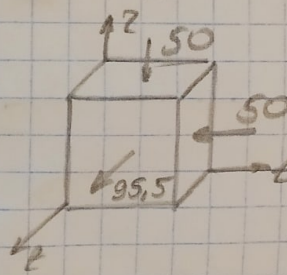 z
50
50
95,5